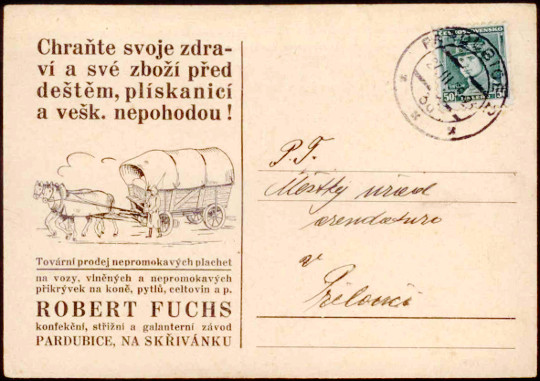 Chraňte svoje zdra-
ví a své zboží před
deštěm, plískanicí
a vešk. nepohodou !
Tovární prodej nepromokavých plachet
na vozy, vlněných a nepromokavých
přikrývek na koně, pytlů, celtovin a p.
ROBERT FUCHS
konfekční, střižní a galanterní závod
PARDUBICE, NA SKŘIVÁNKU
PARDUBICE
50
P. T.
Městký úřad
v